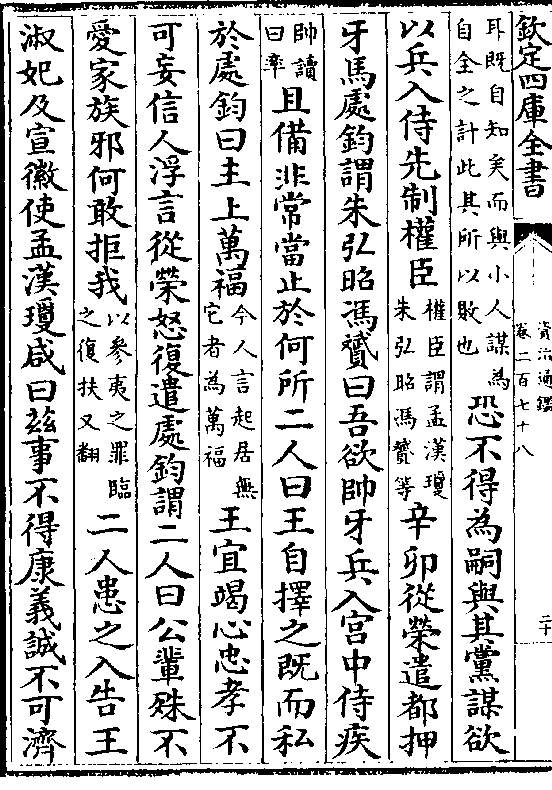 欽定四庫全書
資治通鑑
卷二百七十八
二十
耳既自知矣而與小人謀為
自全之計此其所以敗也
恐不得為嗣與其黨謀欲
以兵入侍先制權臣
權臣謂孟漢瓊
朱弘昭馮贇等
辛卯從榮遣都押
牙馬處鈞謂朱弘昭馮贇曰吾欲帥牙兵入宮中侍疾
帥讀
曰率
且備非常當止於何所二人曰王自擇之既而私
於處鈞曰主上萬福
今人言起居無
它者為萬福
王宜竭心忠孝不
可妄信人浮言從榮怒復遣處鈞謂二人曰公輩殊不
愛家族邪何敢拒我
以參夷之罪臨
之復扶又翻
二人患之入告王
淑妃及宣徽使孟漢瓊咸曰茲事不得康義誠不可濟